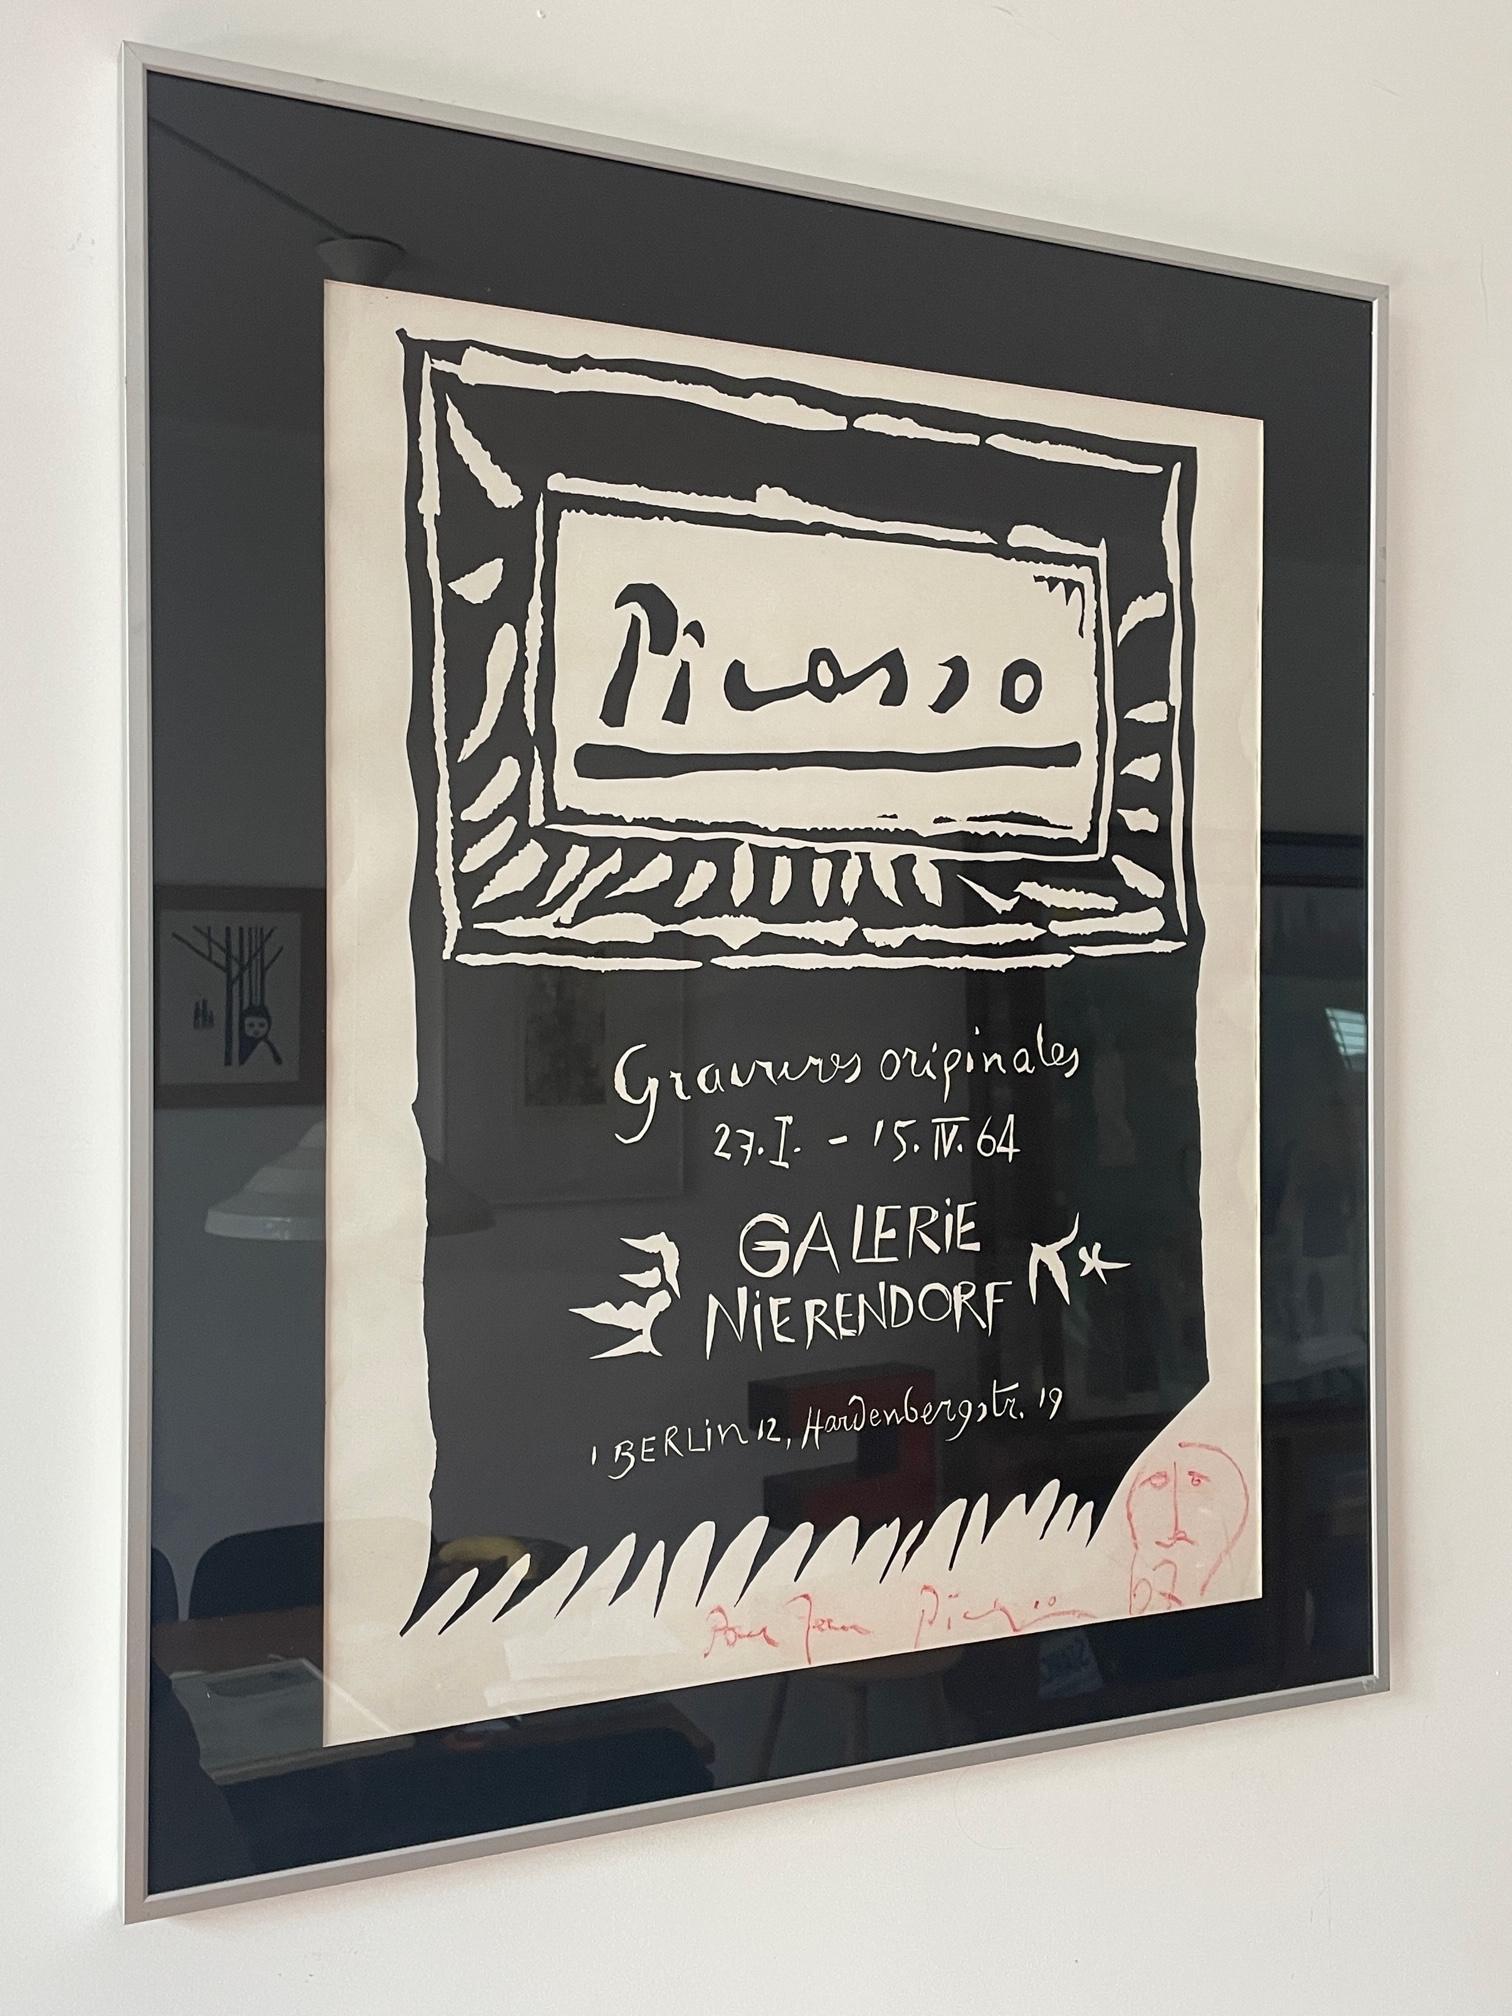 Picasso
Gravures originales
27.I. - 15.IV.64
GALERiE
NiERENDORF
1 BERLin 12, Hardenbergstr. 19
Pour Jean Picasso